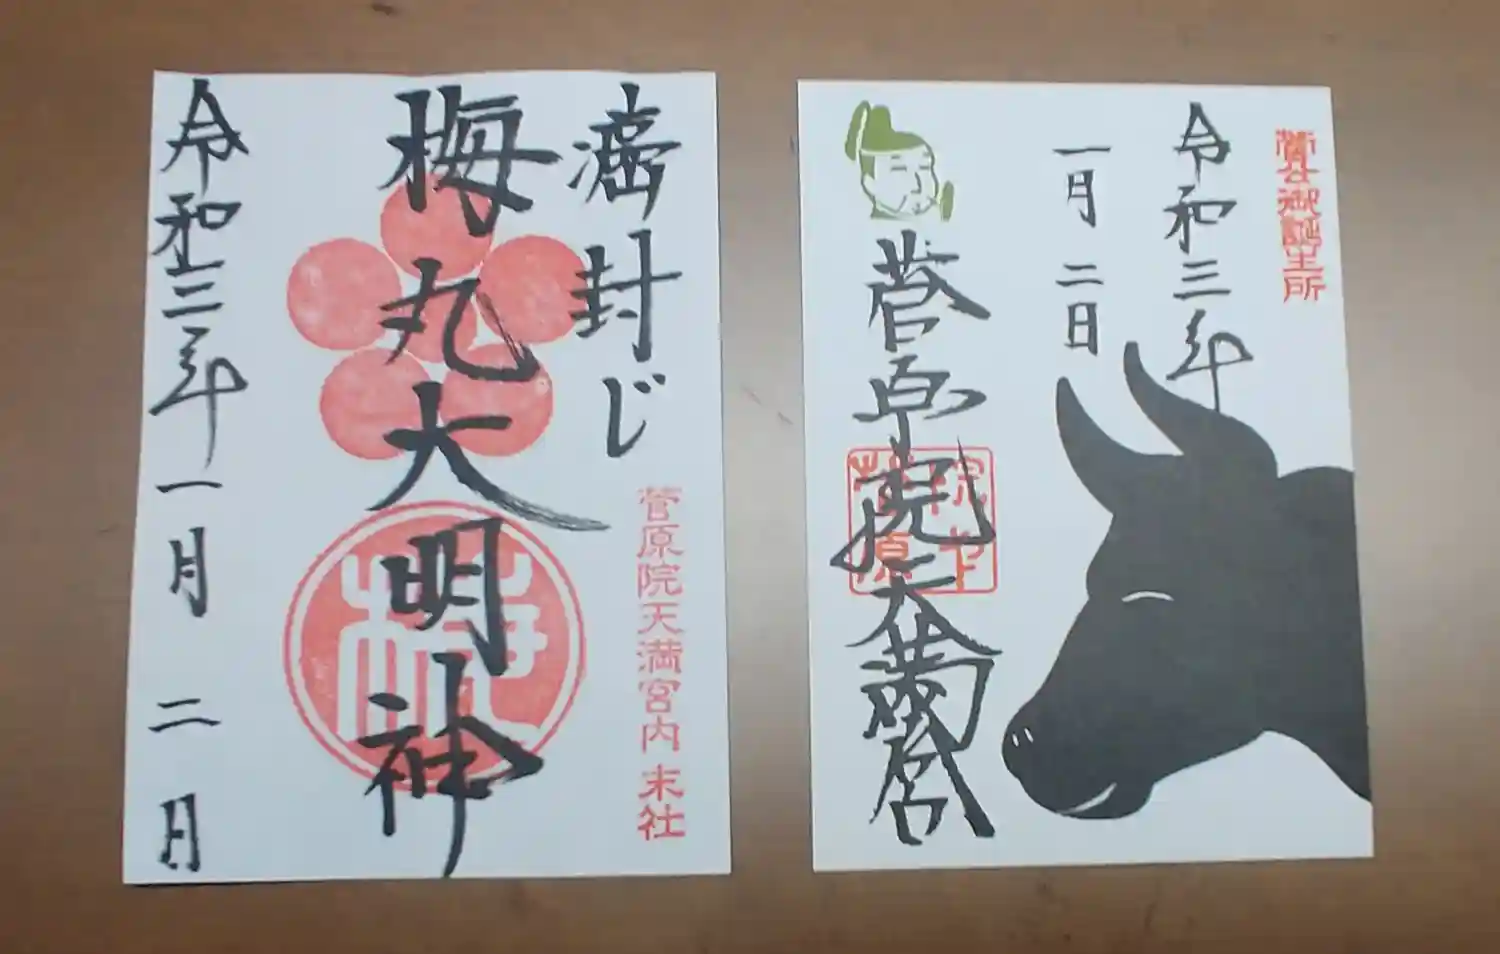 癌封じ
梅丸大明神
菅原院天満宮内 末社
令和三年 一月 二日
菅公御誕生所
令和三年
一月 二日
菅原院天満宮